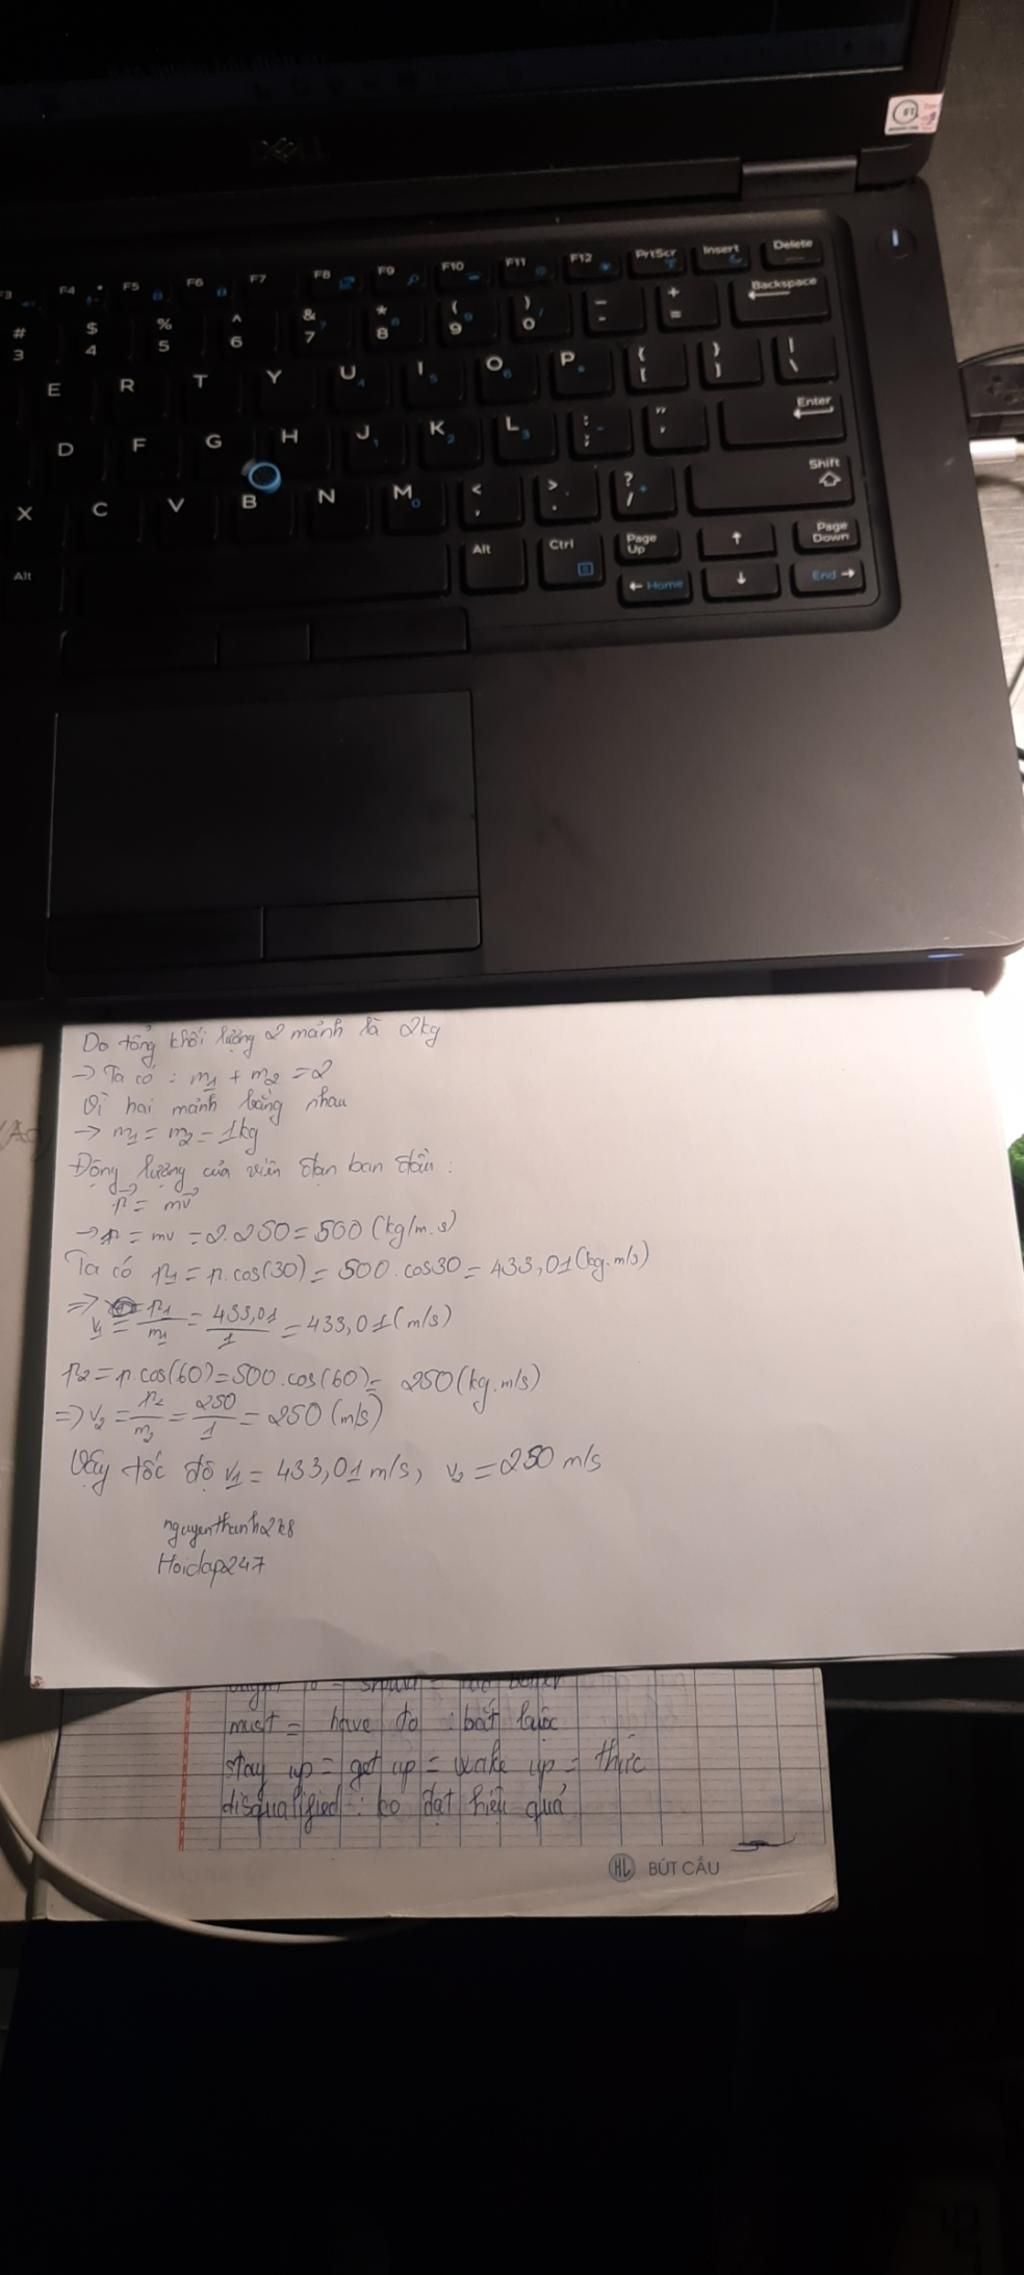 DELL
F3 F4 F5 F6 F7 F8 F9 F10 F11 F12 PrtScr Insert Delete
# 3 $ 4 % 5 ^ 6 & 7 * 8 ( 9 ) 0 _ - + = Backspace
E R T Y U 4 I 5 O 6 P * { [ } ] | \
D F G H J 1 K 2 L 3 : ; " ' Enter
X C V B N M 0 < , > . ? / Shift
Alt Alt Ctrl Page Up ↑ Page Down
← Home ↓ End →
Do tổng khối lượng 2 mảnh là 2kg
→ Ta có : m1 + m2 = 2
Vì hai mảnh bằng nhau
→ m1 = m2 = 1kg
Động lượng của viên đạn ban đầu :
p⃗ = mv⃗
→ p = mv = 2.250 = 500 (kg/m.s)
Ta có p1 = p.cos(30) = 500.cos30 = 433,01 (kg.m/s)
⇒ v1 = p1/m1 = 433,01/1 = 433,01 (m/s)
p2 = p.cos(60) = 500.cos(60) = 250 (kg.m/s)
⇒ v2 = p2/m2 = 250/1 = 250 (m/s)
Vậy tốc độ v1 = 433,01 m/s, v2 = 250 m/s
nguyenthanh2k8
Hoidap247
must = have to : bắt buộc
stay up = get up = wake up = thức
disqualified : ko đạt hiệu quả
HL BÚT CẦU